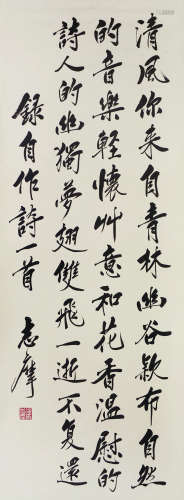 清風你来自青林幽谷款布自然
的音樂輕懷艸意和花香温慰的
詩人的幽獨夢翅雙飛一逝不复還
録自作詩一首
志摩